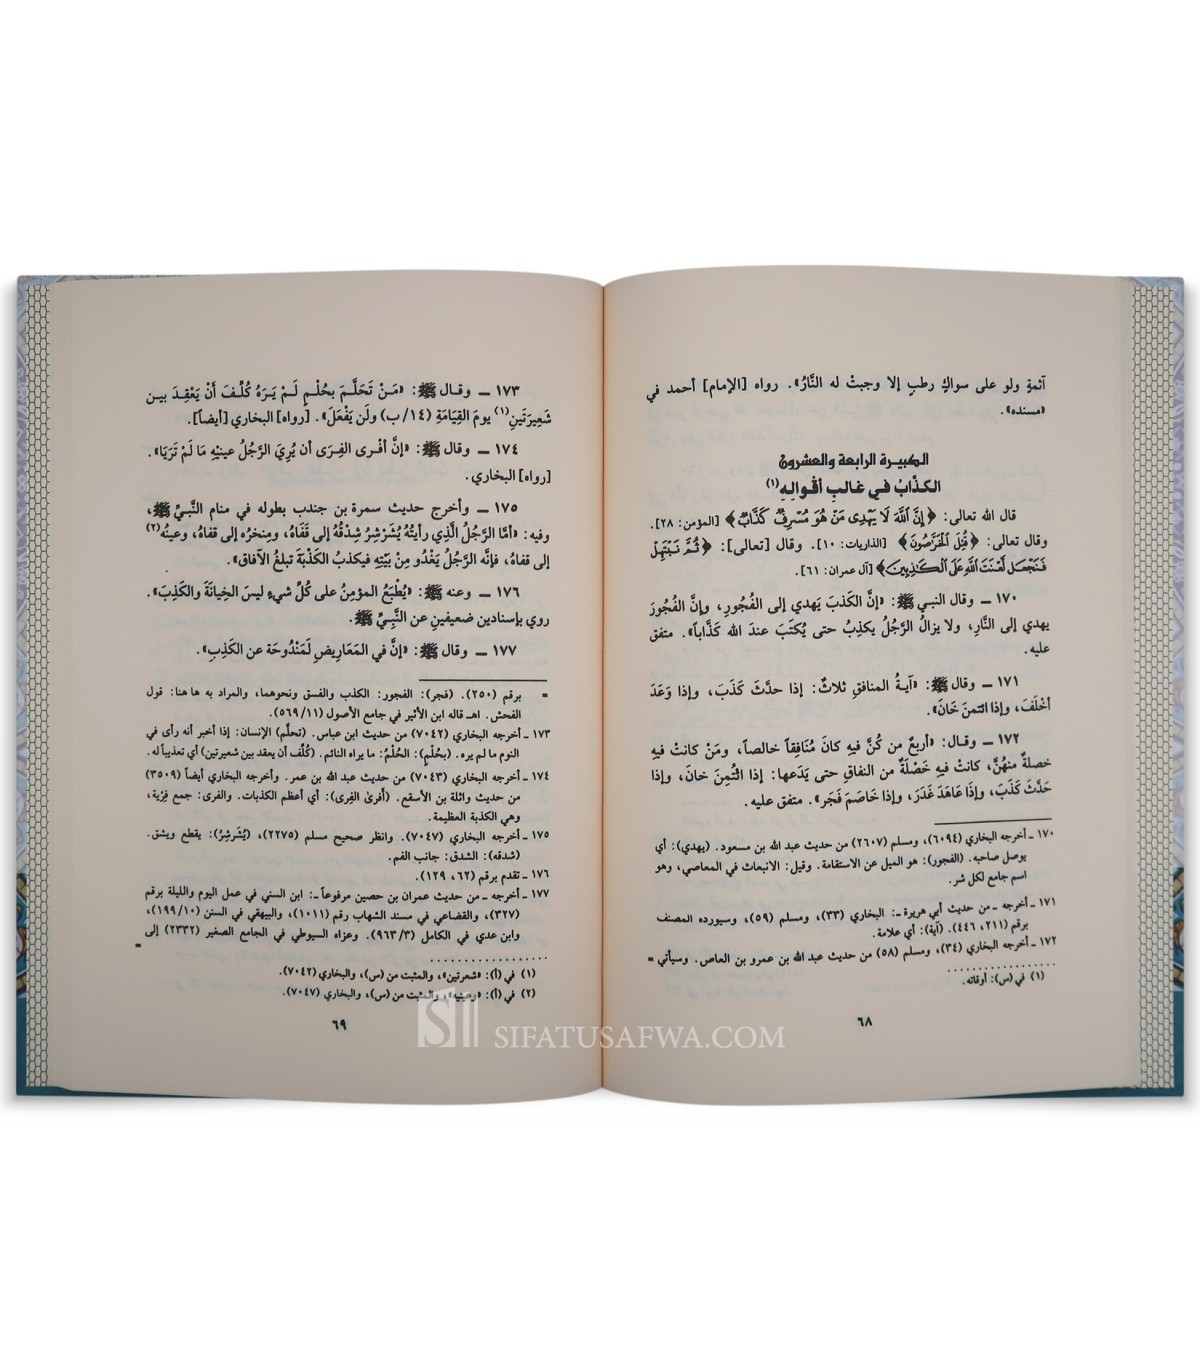 آثمةٍ ولو على سواكٍ رطبٍ إلا وجبتْ له النَّارُ». رواه [الإمام] أحمد في
«مسنده».
الكبيرة الرابعة والعشرون
الكذّابُ في غالبِ أقوالِهِ(١)
قال الله تعالى: ﴿إِنَّ اللَّهَ لَا يَهْدِي مَنْ هُوَ مُسْرِفٌ كَذَّابٌ﴾ [المؤمن: ٢٨].
وقال تعالى: ﴿قُتِلَ الْخَرَّاصُونَ﴾ [الذاريات: ١٠]. وقال [تعالى]: ﴿ثُمَّ نَبْتَهِلْ
فَنَجْعَل لَّعْنَتَ اللَّهِ عَلَى الْكَاذِبِينَ﴾ [آل عمران: ٦١].
١٧٠ ـ وقال النبي ﷺ: «إنَّ الكذبَ يَهدي إلى الفُجُورِ، وإنَّ الفُجُورَ
يهدي إلى النَّارِ، ولا يزالُ الرَّجُلُ يكذِبُ حتى يُكتَبَ عندَ الله كَذَّاباً». متفق
عليه.
١٧١ ـ وقال ﷺ: «آيةُ المنافقِ ثلاثٌ: إذا حدَّثَ كَذَبَ، وإذا وَعَدَ
أخْلَفَ، وإذا ائتمنَ خَانَ».
١٧٢ ـ وقال: «أربعٌ من كُنَّ فيهِ كانَ مُنَافِقاً خالصاً، ومَنْ كانتْ فيهِ
خصلةٌ منهُنَّ، كانت فيهِ خَصْلَةٌ من النفاقِ حتى يَدَعها: إذا ائْتُمِنَ خانَ، وإذا
حَدَّثَ كَذَبَ، وإذا عَاهَدَ غَدَرَ، وإذا خَاصَمَ فَجَر». متفق عليه.
١٧٠ ـ أخرجه البخاري (٦٠٩٤)، ومسلم (٢٦٠٧) من حديث عبد الله بن مسعود. (يهدي): أي
يوصل صاحبه. (الفجور): هو الميل عن الاستقامة. وقيل: الانبعاث في المعاصي، وهو
اسم جامع لكل شر.
١٧١ ـ أخرجه ـ من حديث أبي هريرة ـ: البخاري (٣٣)، ومسلم (٥٩)، وسيورده المصنف
برقم (٢١١، ٤٤٦). (آية): أي علامة.
١٧٢ ـ أخرجه البخاري (٣٤)، ومسلم (٥٨) من حديث عبد الله بن عمرو بن العاص. وسيأتي =
(١) في (س): أوقاته.
٦٨
١٧٣ ـ وقال ﷺ: «مَنْ تَحَلَّمَ بحُلْمٍ لَمْ يَرَهُ كُلِّفَ أَنْ يَعْقِدَ بين
شَعِيرَتَينِ(١) يومَ القِيَامَةِ (١٤/ ب) ولَن يَفْعَلَ». [رواه] البخاري [أيضاً].
١٧٤ ـ وقال ﷺ: «إنَّ أفْرى الفِرَى أن يُرِيَ الرَّجُلُ عينيْهِ مَا لَمْ تَرَيَا».
[رواه] البخاري.
١٧٥ ـ وأخرج حديث سمرة بن جندب بطوله في منام النَّبيِّ ﷺ،
وفيه: «أمَّا الرَّجُلُ الَّذِي رأيتُهُ يُشَرْشَرُ شِدْقُهُ إلى قَفَاهُ، ومِنخرُه إلى قفاهُ، وعينُه(٢)
إلى قفاهُ، فإنَّه الرَّجُلُ يَغْدُو مِنْ بَيْتِهِ فيكذبُ الكَذْبَةَ تبلغُ الآفاق».
١٧٦ ـ وعنه ﷺ: «يُطْبَعُ المؤمِنُ على كُلِّ شيءٍ ليسَ الخِيانَةَ والكَذِبَ».
روي بإسنادين ضعيفينِ عن النَّبِيِّ ﷺ.
١٧٧ ـ وقال ﷺ: «إنَّ في المَعَاريضِ لَمَنْدُوحَة عن الكَذِبِ».
= برقم (٢٥٠). (فجر): الفجور: الكذب والفسق ونحوهما، والمراد به ها هنا: قول
الفحش. اهـ قاله ابن الأثير في جامع الأصول (١١/ ٥٦٩).
١٧٣ ـ أخرجه البخاري (٧٠٤٢) من حديث ابن عباس. (تحلَّم) الإنسان: إذا أخبر أنه رأى في
النوم ما لم يره. (بحُلْمٍ): الحُلْمُ: ما يراه النائم. (كُلِّف أن يعقد بين شعيرتين) أي تعذيباً له.
١٧٤ ـ أخرجه البخاري (٧٠٤٣) من حديث عبد الله بن عمر. وأخرجه البخاري أيضاً (٣٥٠٩)
من حديث واثلة بن الأسقع. (أفرىٰ الفِرى): أي أعظم الكذبات. والفرى: جمع فِرْية،
وهي الكذبة العظيمة.
١٧٥ ـ أخرجه البخاري (٧٠٤٧). وانظر صحيح مسلم (٢٢٧٥)، (يُشَرشِرُ): يقطع ويشق.
(شدقه): الشدق: جانب الفم.
١٧٦ ـ تقدم برقم (٦٢، ١٢٩).
١٧٧ ـ أخرجه ـ من حديث عمران بن حصين مرفوعاً ـ: ابن السني في عمل اليوم والليلة برقم
(٣٢٧)، والقضاعي في مسند الشهاب رقم (١٠١١)، والبيهقي في السنن (١٩٩/١٠)،
وابن عدي في الكامل (٩٦٣/٣). وعزاه السيوطي في الجامع الصغير (٢٣٣٢) إلى =
(١) في (أ): «شعرتين»، والمثبت من (س)، والبخاري (٧٠٤٢).
(٢) في (أ): «وعينيه»، والمثبت من (س)، والبخاري (٧٠٤٧).
٦٩
SIFATUSAFWA.COM